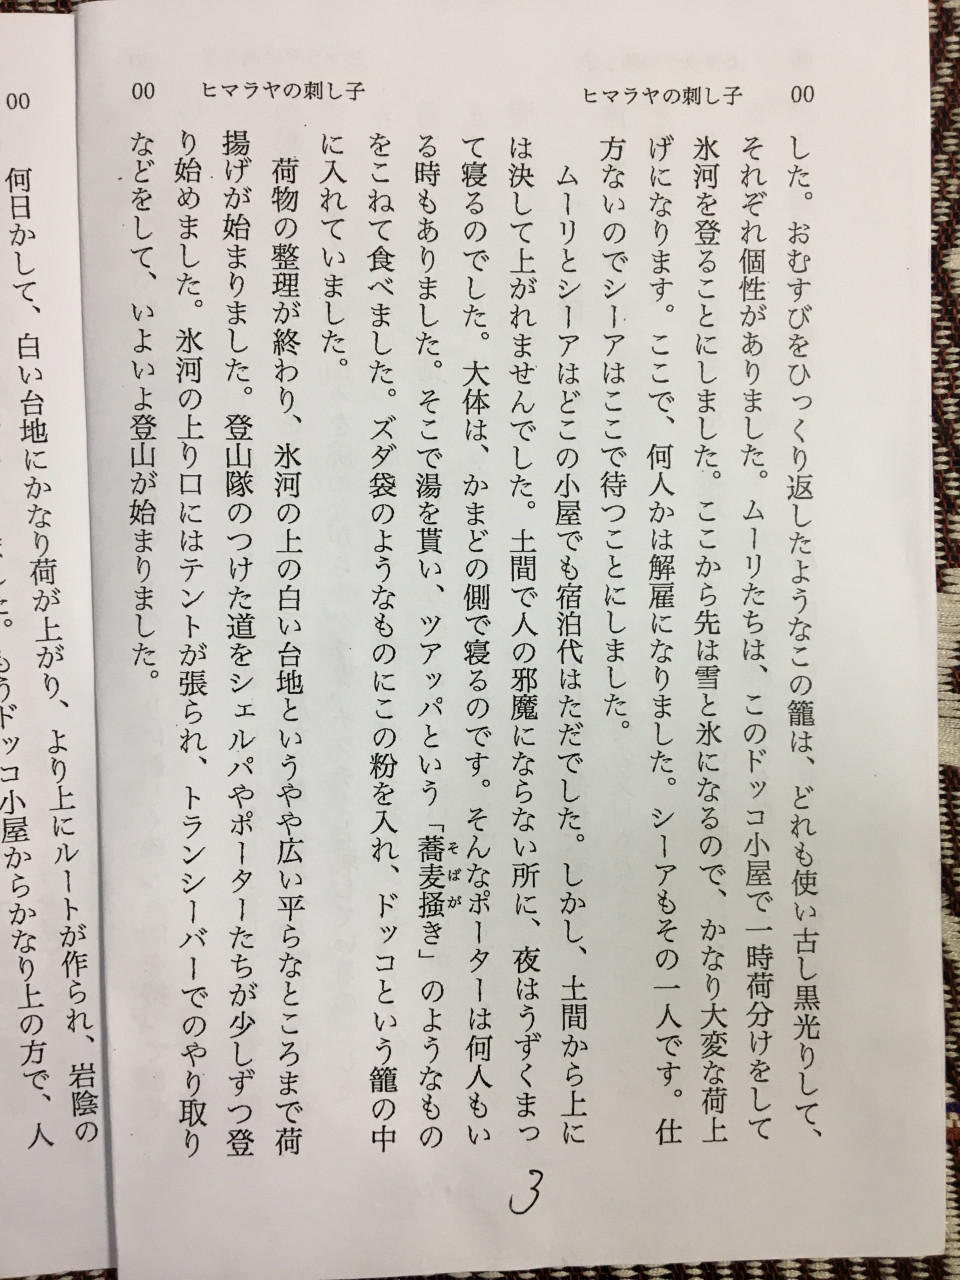 00 ヒマラヤの刺し子
した。おむすびをひっくり返したようなこの籠は、どれも使い古し黒光りして、
それぞれ個性がありました。ムーリたちは、このドッコ小屋で一時荷分けをして
氷河を登ることにしました。ここから先は雪と氷になるので、かなり大変な荷上
げになります。ここで、何人かは解雇になりました。シーアもその一人です。仕
方ないのでシーアはここで待つことにしました。
ムーリとシーアはどこの小屋でも宿泊代はただでした。しかし、土間から上に
は決して上がれませんでした。土間で人の邪魔にならない所に、夜はうずくまっ
て寝るのでした。大体は、かまどの側で寝るのです。そんなポーターは何人もい
る時もありました。そこで湯を貰い、ツアッパという「蕎麦掻き」のようなもの
そばが
をこねて食べました。ズダ袋のようなものにこの粉を入れ、ドッコという籠の中
に入れていました。
00 ヒマラヤの刺し子
荷物の整理が終わり、氷河の上の白い台地というやや広い平らなところまで荷
揚げが始まりました。登山隊のつけた道をシェルパやポーターたちが少しずつ登
り始めました。氷河の上り口にはテントが張られ、トランシーバーでのやり取り
などをして、いよいよ登山が始まりました。
3
00
何日かして、白い台地にかなり荷が上がり、より上にルートが作られ、岩陰の
もうドッコ小屋からかなり上の方で、人